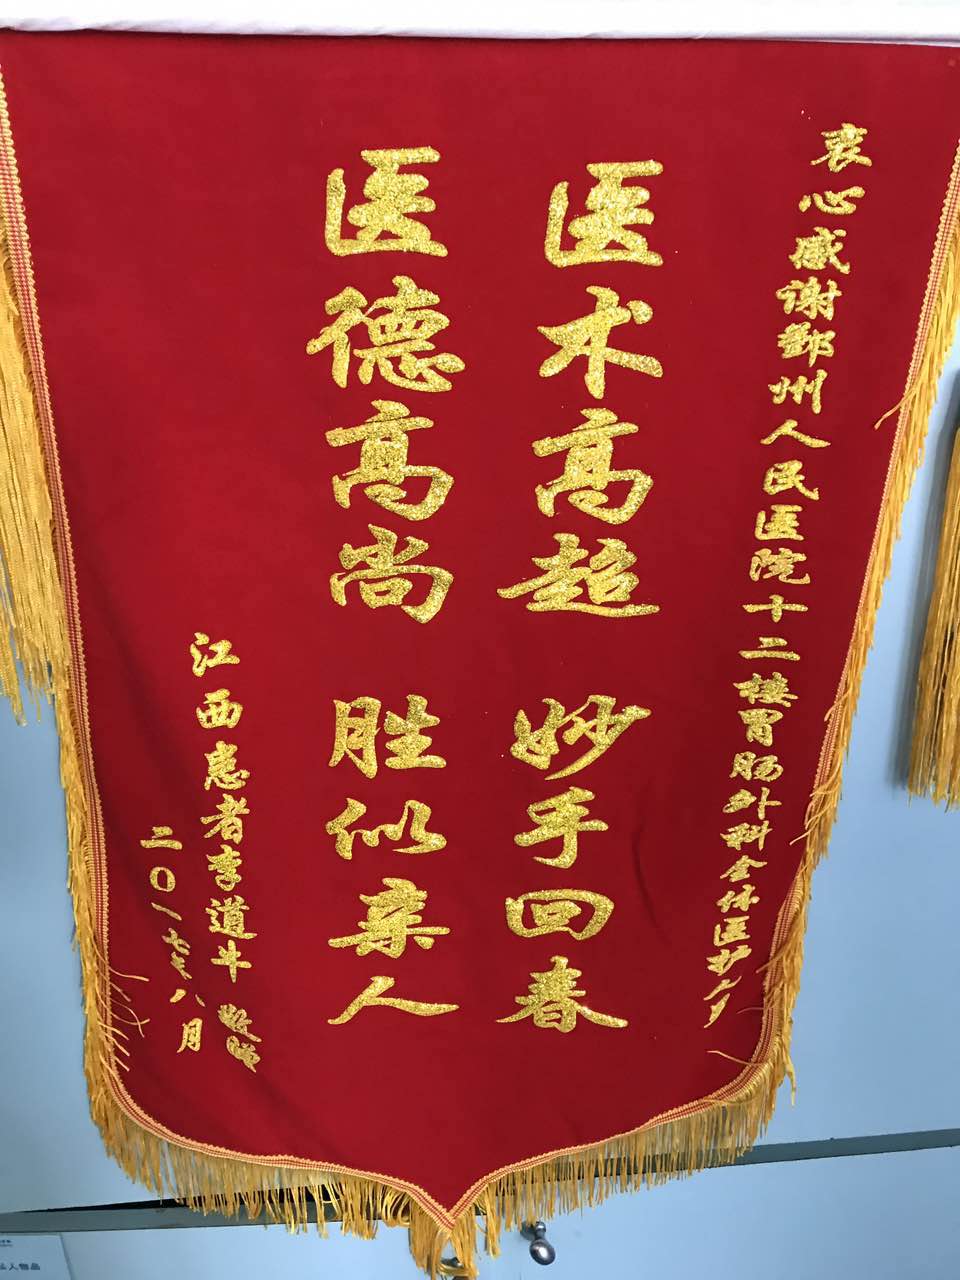 衷心感谢鄞州人民医院十二楼胃肠外科全体医护人员
医术高超 妙手回春
医德高尚 胜似亲人
江西患者李道斗 敬赠
二〇一七年八月
人物品